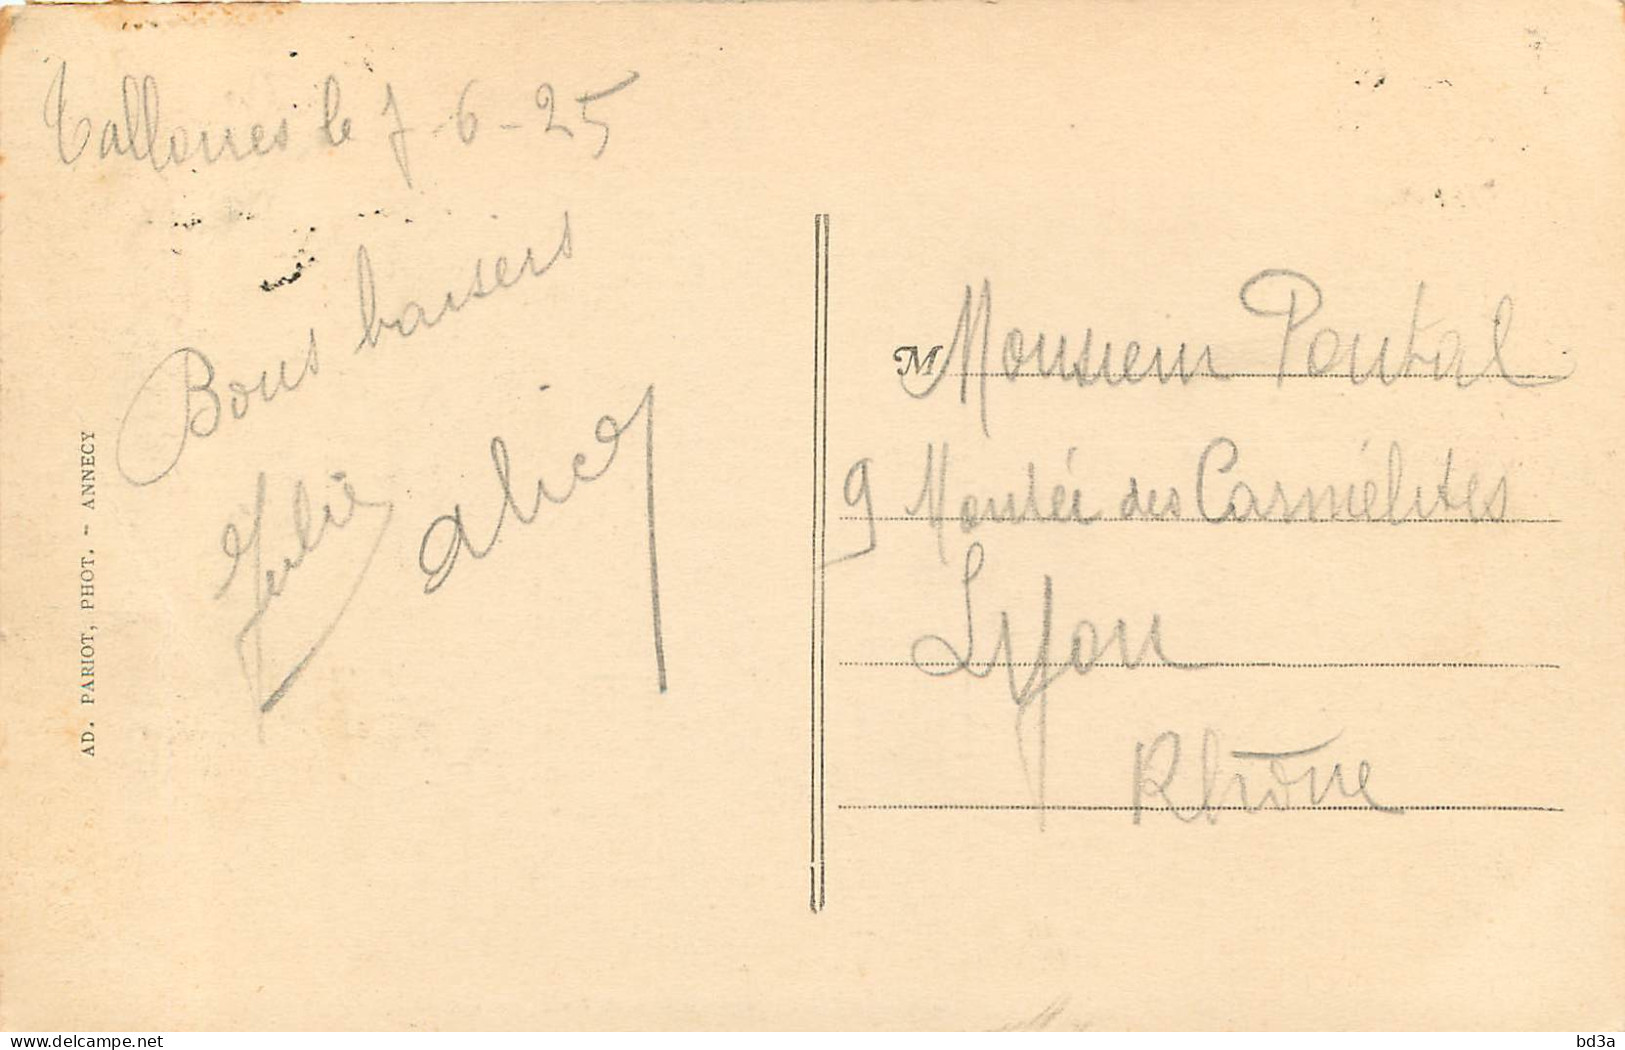 Talloires le 7-6-25
Bons baisers
Julie
Alice
AD. PARIOT, PHOT. - ANNECY
M Monsieur Pontal
9 Montée des Carmélites
Lyon
Rhône
delcampe.net
bd3a